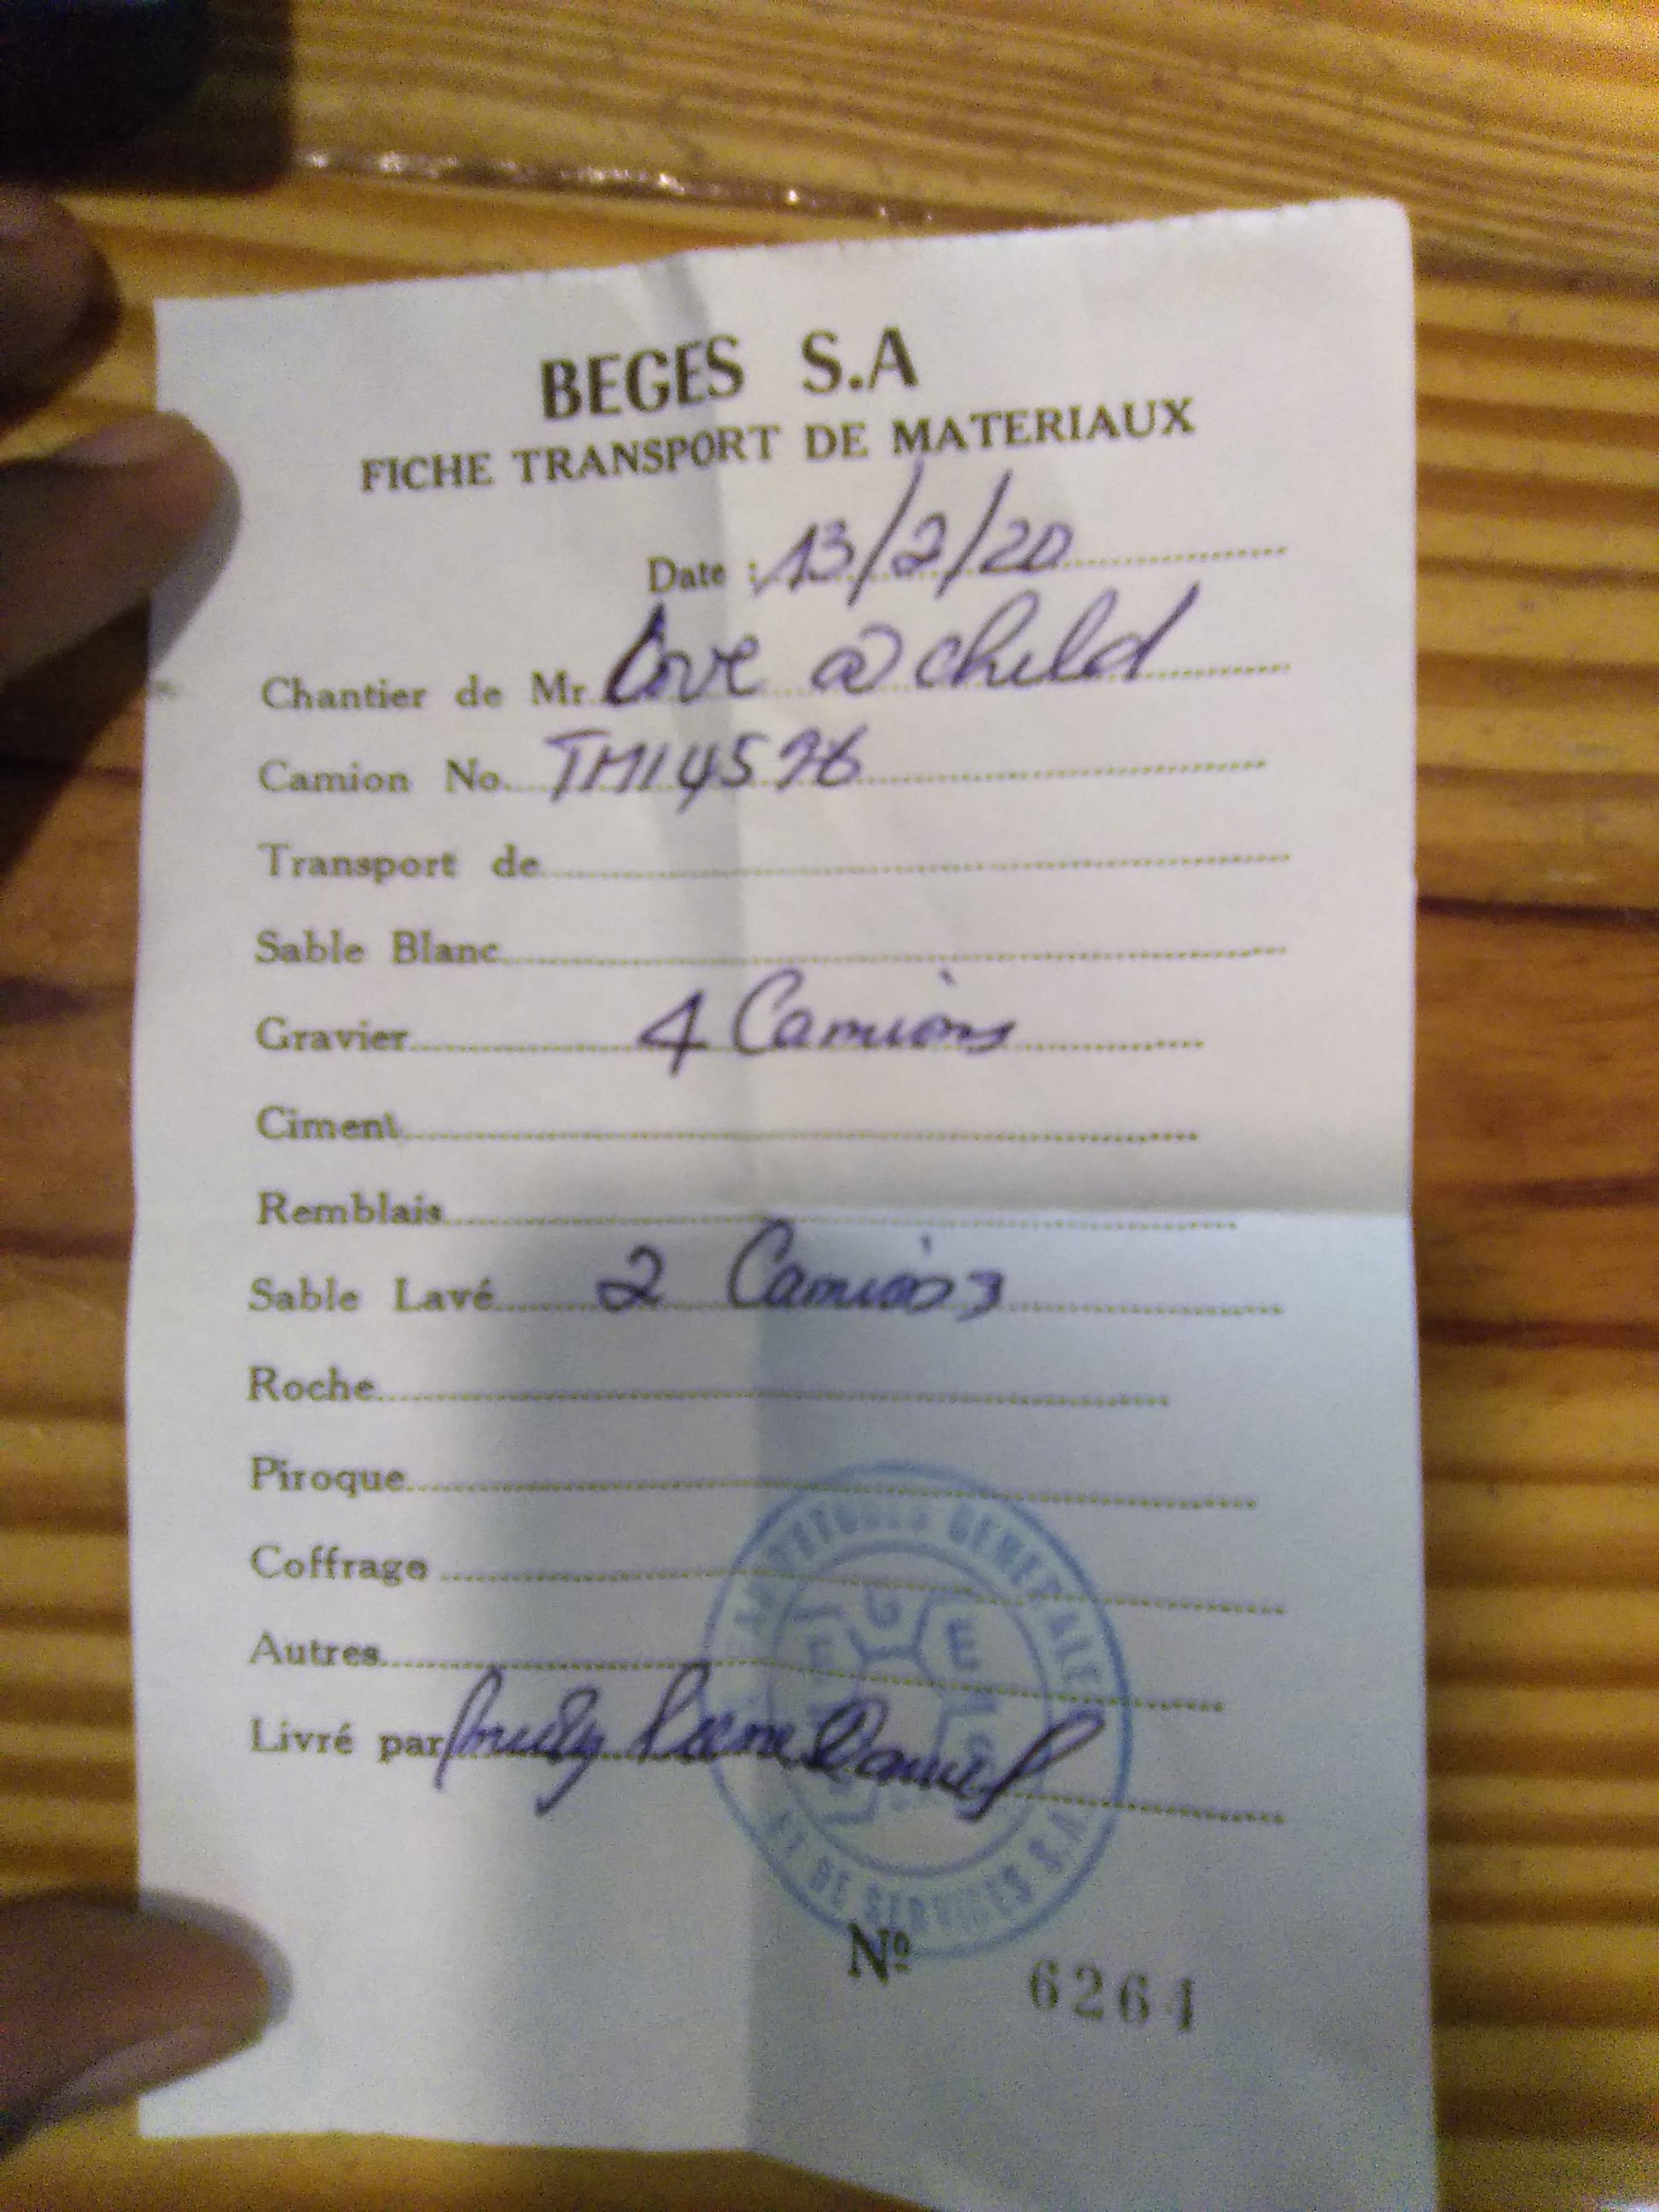 BEGES S.A
FICHE TRANSPORT DE MATERIAUX
Date : 13/2/20
Chantier de Mr. Love a child
Camion No. TM14576
Transport de
Sable Blanc
Gravier 4 Camions
Ciment
Remblais
Sable Lavé 2 Camions
Roche
Piroque
Coffrage
Autres
Livré par Daniel
ETUDES GENERALES
ET DE SERVICES S.A.
Nº 6261